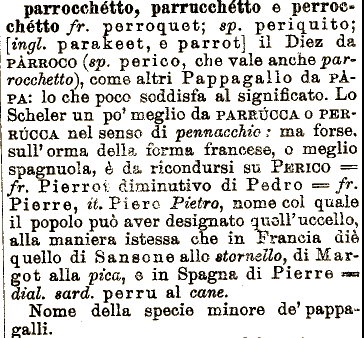 parrocchétto, parrucchétto e perroc-
chétto fr. perroquet; sp. periquito;
[ingl. parakeet, e parrot] il Diez da
PÀRROCO (sp. perico, che vale anche par-
rocchetto), come altri Pappagallo da PÀ-
PA: lo che poco soddisfa al significato. Lo
Scheler un po' meglio da PARRÚCCA O PER-
RÚCCA nel senso di pennacchio: ma forse.
sull'orma della forma francese, o meglio
spagnuola, é da ricondursi su PERICO =
fr. Pierrot diminutivo di Pedro = fr.
Pierre, it. Piero Pietro, nome col quale
il popolo può aver designato quell'uccello,
alla maniera istessa che in Francia diè
quello di Sansone allo stornello, di Mar-
got alla pica, e in Spagna di Pierre =
dial. sard. perru al cane.
Nome della specie minore de' pappa-
galli.